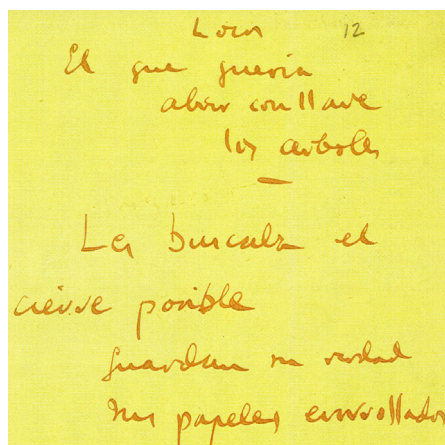 Locos 12
El que quería
abrir con llave
los árboles
Les buscaba el
cierre posible
guardan su verdad
sus papeles enrollados